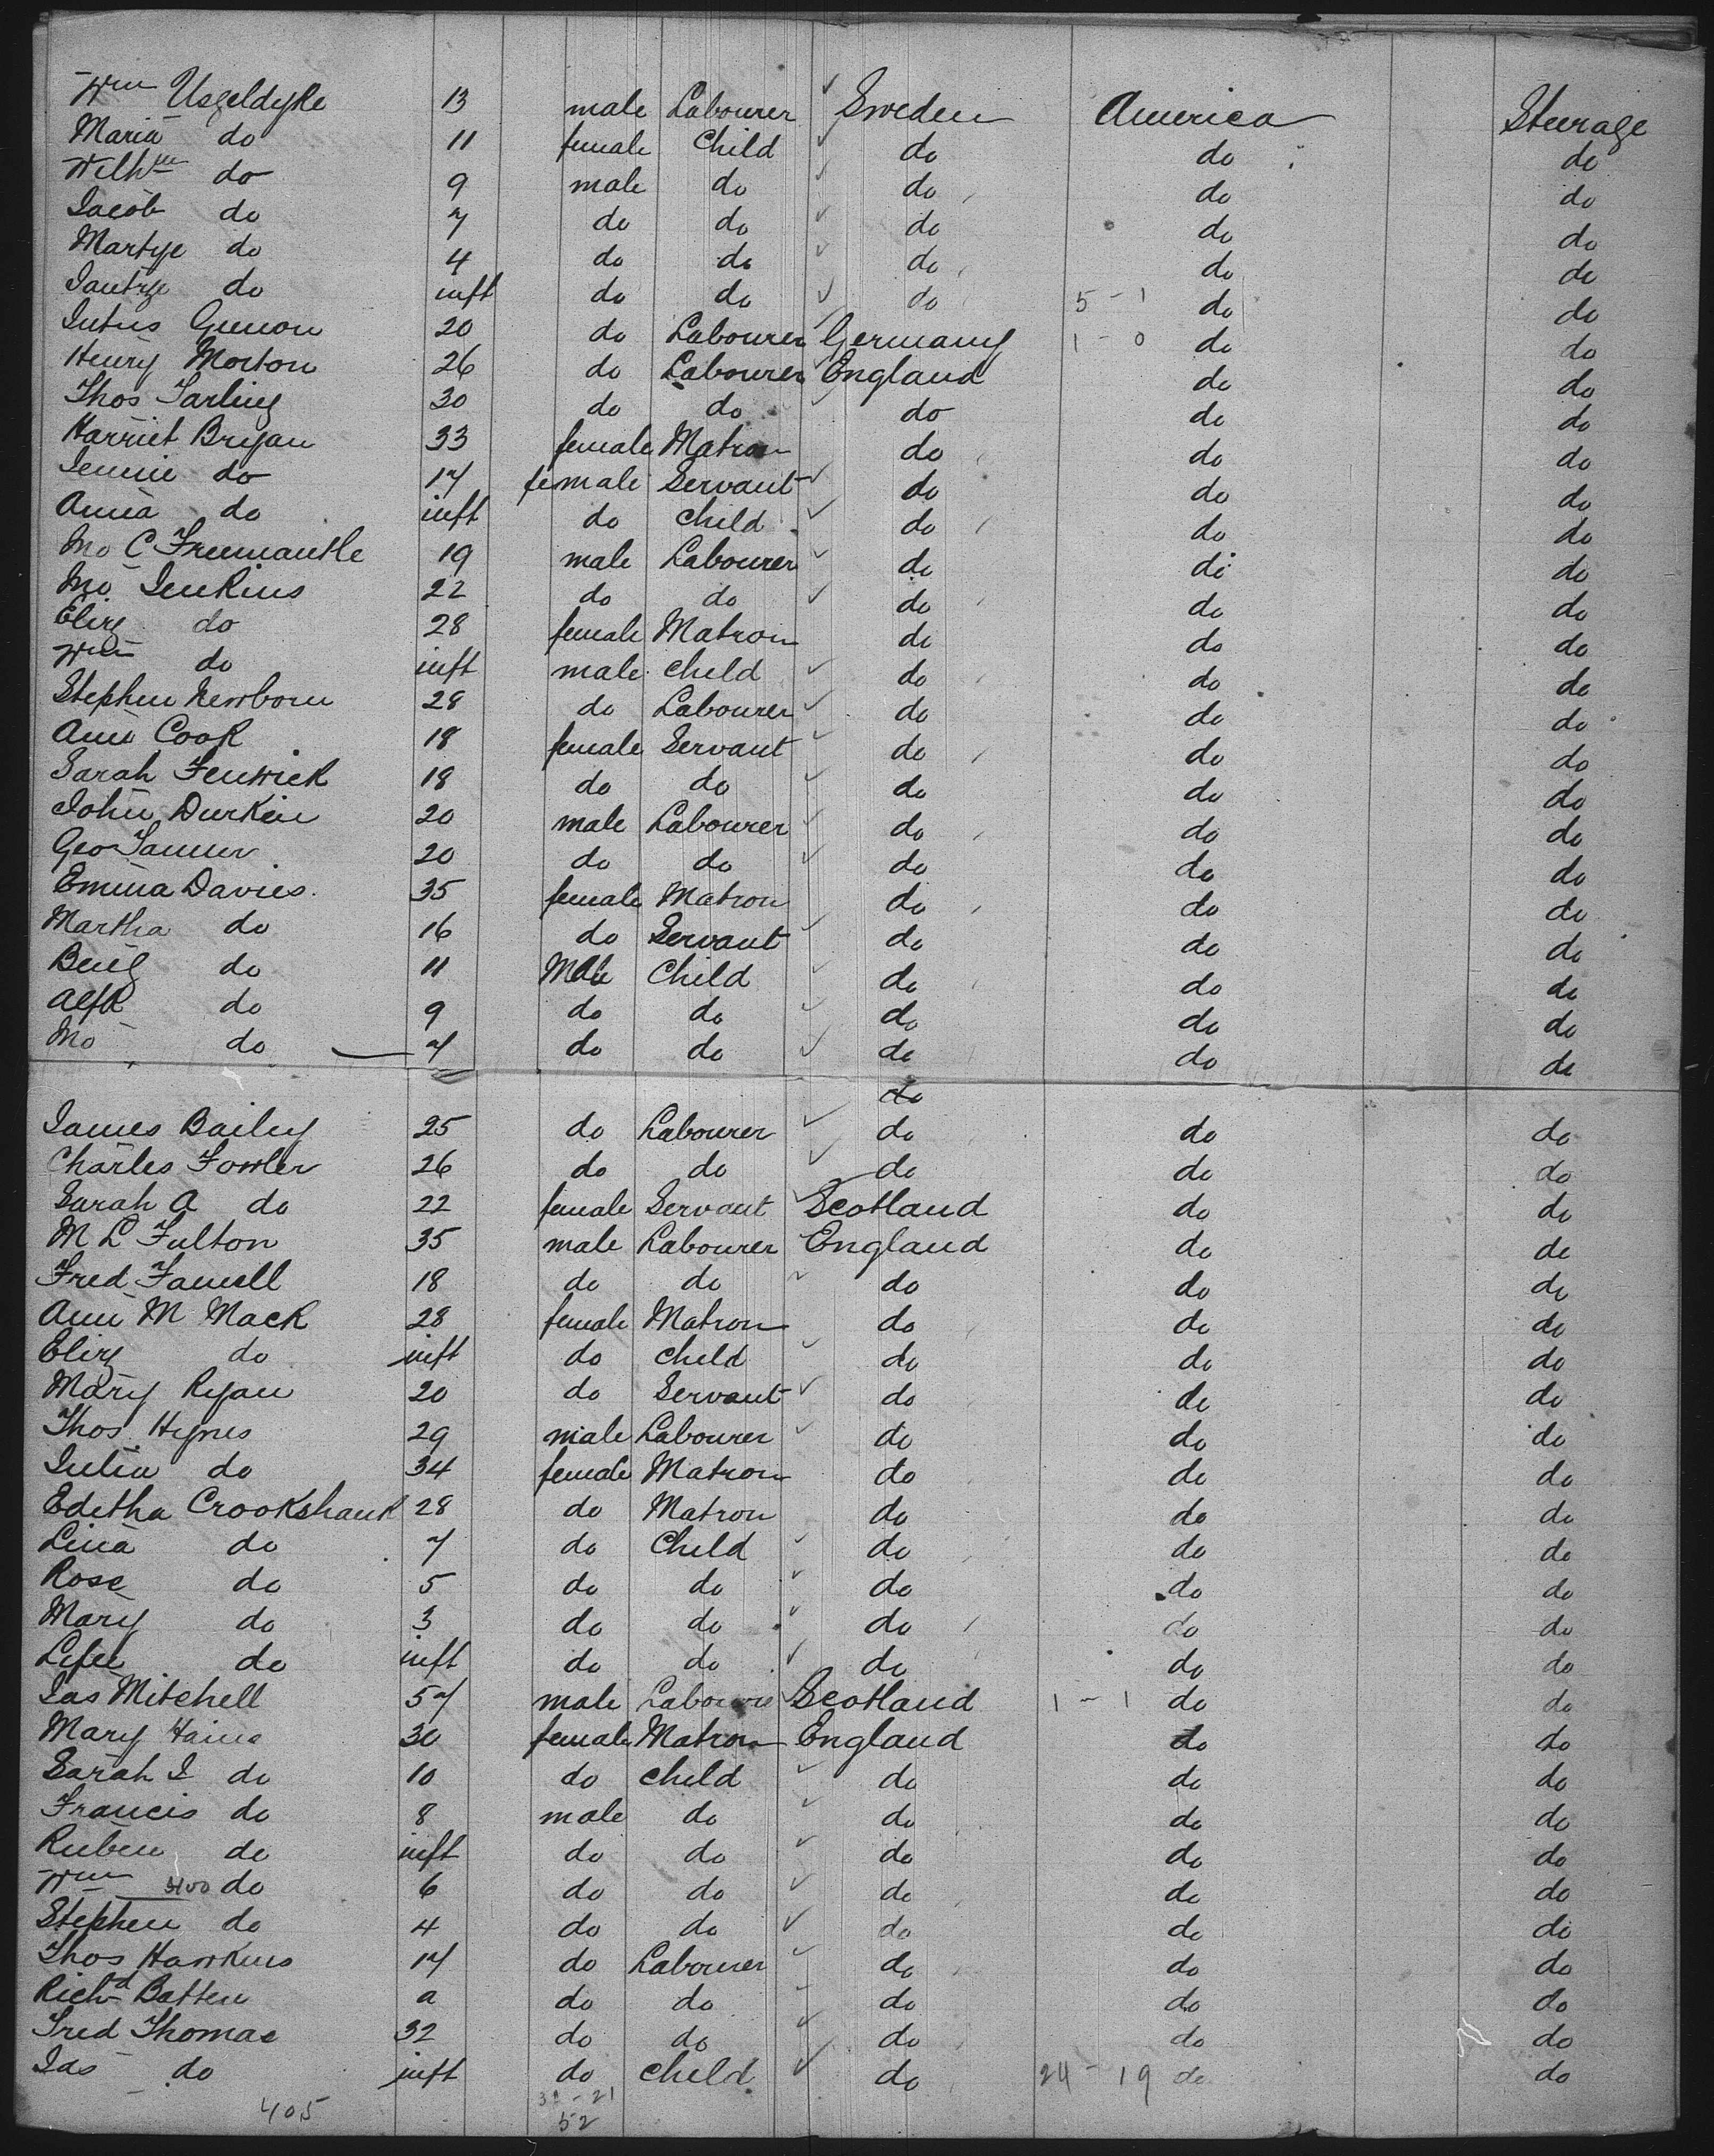 Wm Usgeldyke 13 male Labourer Sweden America Steerage
Maria do 11 female Child do do do
Wilhm do 9 male do do do do
Jacob do 7 do do do do do
Martye do 4 do do do do do
Jantye do inft do do do 5-1 do do
Julius Gunion 20 do Labourer Germany 1-0 do do
Henry Morton 26 do Labourer England do do
Thos Tarling 30 do do do do do
Harriet Bryan 33 female Matron do do do
Jennie do 17 female Servant do do do
Anna do inft do child do do do
Jno C Freemantle 19 male Labourer do do do
Jno Jenkins 22 do do do do do
Eliz do 28 female Matron do do do
Wm do inft male child do do do
Stephen Newborn 28 do Labourer do do do
Ann Cook 18 female Servant do do do
Sarah Fenwick 18 do do do do do
John Durkin 20 male Labourer do do do
Geo Tanner 20 do do do do do
Emma Davies 35 female Matron do do do
Martha do 16 do Servant do do do
Benj do 11 Male Child do do do
Alfd do 9 do do do do do
Jno do 7 do do do do do
do
James Bailey 25 do Labourer do do do
Charles Fowler 26 do do do do do
Sarah A do 22 female Servant Scotland do do
M L Fulton 35 male Labourer England do do
Fred 18 do do do do do
Ann M Mack 28 female Matron do do do
Eliz do inft do child do do do
Mary Ryan 20 do Servant do do do
Thos Hynes 29 male Labourer do do do
Julia do 34 female Matron do do do
Editha Crookshank 28 do Matron do do do
Lina do 7 do Child do do do
Rose do 5 do do do do do
Mary do 3 do do do do do
do inft do do do do do
Jas Mitchell 57 male Labourer Scotland 1-1 do do
Mary Haine 30 female Matron England do do
Sarah J do 10 do child do do do
Francis do 8 male do do do do
Ruben do inft do do do do do
Wm do 6 do do do do do
Stephen do 4 do do do do do
Thos Hawkins 17 do Labourer do do do
Richd Batten a do do do do do
Fred Thomas 32 do do do do do
Jas do inft do child do 24-19 do do
405 31-21
52